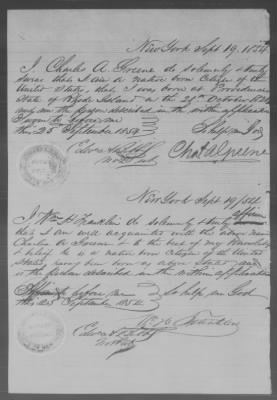 New York Sept 19, 1854
I, Charles A. Greene do solemnly & truly
swear that I am a native born Citizen of the
United States, that I was born at Providence
State of Rhode Island on the 28th October
and am the person described in the within application
Sworn to before me
this 25 September 1854 So help me God
Chas A Greene
New York Sept 19/54
I Wm H Franklin do solemnly & truly affirm
that I am well acquainted with the above
Charles A Greene & to the best of my Knowledge
& belief he is a native born Citizen of the United
States, having been born as above stated and
is the person described in the within application
before me So help me God
this 25 September 1854
W. H. Franklin